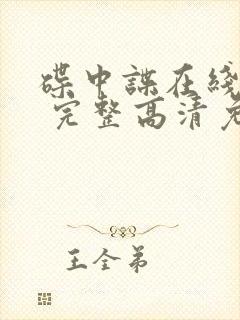 碟中諜在綫
完整高清免
王全弟